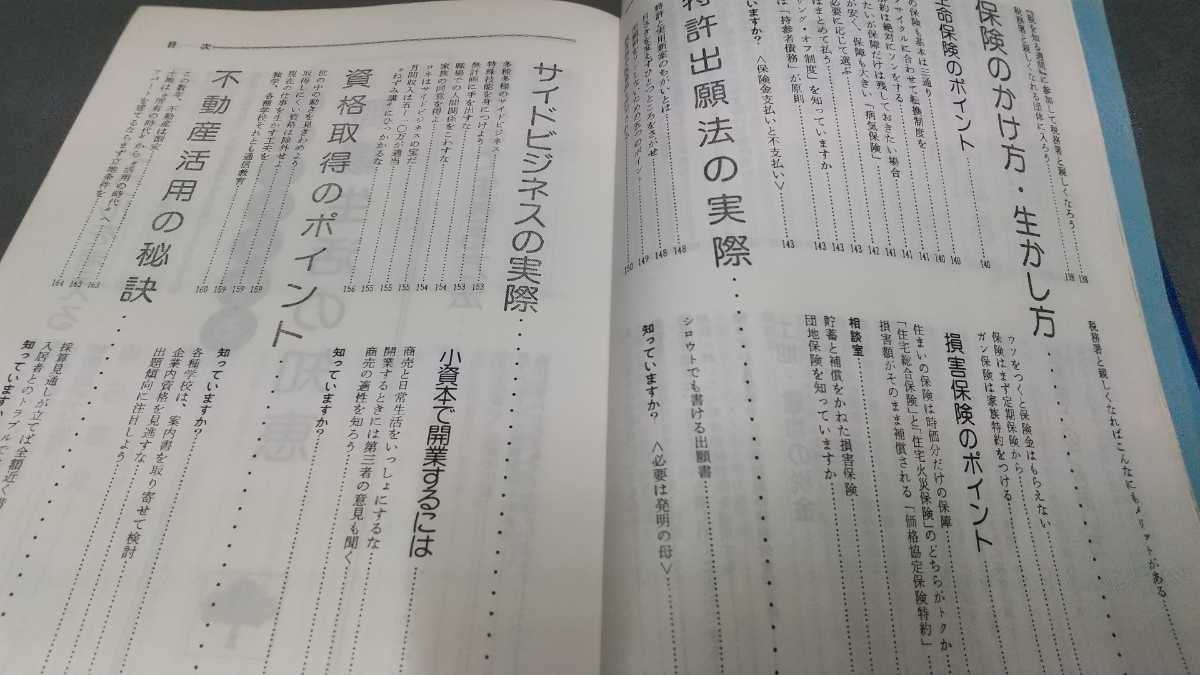 『税を知る週間』に参加して税務署と親しくなろう
138
税務署と親しくなれる団体に入ろう
138
税務署と親しくなればこんなにもメリットがある
保険のかけ方・生かし方
140
生命保険のポイント
140
の保険も基本は三通り
140
サイクルに合わせて転換制度を
141
約は絶対にソンをする
141
たいが保障だけは残しておきたい場合
141
が安く、保障も大きい「病気保険」
142
必要に応じて選ぶ
143
はまとめて払う
143
ング・オフ制度」を知っていますか
143
は「持参者債務」が原則
143
いますか? <保険金支払いと不支払い>
143
ウソをつくと保険金はもらえない
保険はまず定期保険から
ガン保険は家族特約をつける
損害保険のポイント
住まいの保険は時価分だけの保障
「住宅総合保険」と「住宅火災保険」のどちらがトクか
損害額がそのまま補償される「価格協定保険特約」
相談室
貯蓄と補償をかねた損害保険
団地保険を知っていますか
特許出願法の実際
148
特許と実用新案のちがいとは
148
149
150
シロウトでも書ける出願書
知っていますか? <必要は発明の母>
目 次
サイドビジネスの実際
153
多種多様のサイドビジネス
153
特殊技能を身につけよう
153
無計画に手を出すな
154
職場での人間関係をこわすな
154
家族の同意を得よ
155
コネはサイドビジネスの宝だ
155
155
〝ねずみ講〟にひっかかるな
156
小資本で開業するには
商売と日常生活をいっしょにするな
開業するときには第三者の意見も聞く
商売の適性を知ろう
知っていますか?
資格取得のポイント
世の中の動きを見きわめよう
159
取得しにくい資格は除外せよ
159
現在の仕事を生かす工夫を
159
独学、各種学校それとも通信教育
160
知っていますか?
各種学校は、案内書を取り寄せて検討
企業内資格を見逃すな
出題傾向に注目しよう
不動産活用の秘訣
163
この数年、不動産は割安
163
土地は〝所有の時代〟から〝活用の時代〟へ
164
アパートを建てるならまず立地条件を
採算見通しが立てば全額近く借
入居者とのトラブルで
知っていますか